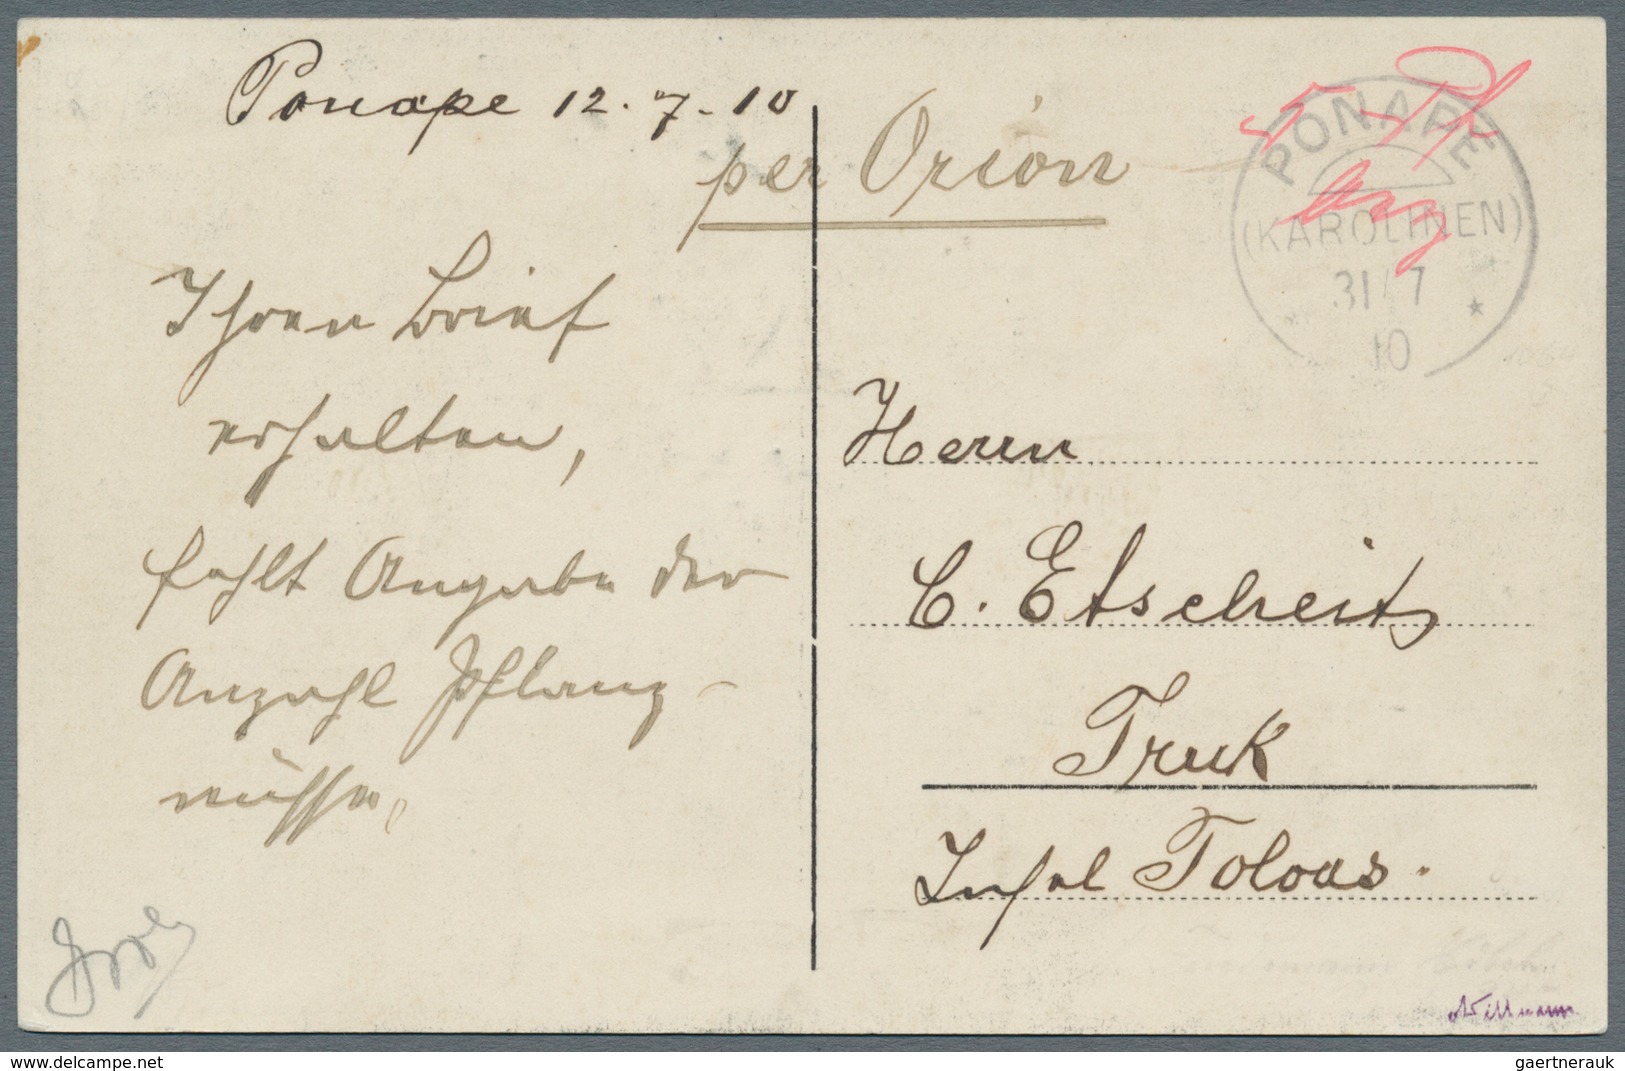 Ponape 12.7.10
per Orion
5 Pf
PONAPE
(KAROLINEN)
31/7
10
Ihren Brief
erhalten,
fehlt Angabe der
Anzahl Pflanz-
nüsse.
Herrn
C. Etscheit
Truk
Insel Toloas.
Willmann
www.delcampe.net
gaertnerauk